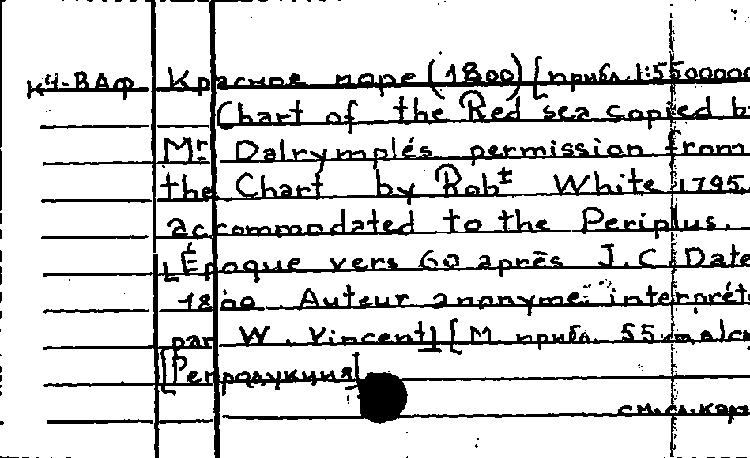 к4-ВАф Красное море (1800) [прибл. 1:5500000
Chart of the Red sea copied b
Mr Dalrymplés permission from
the Chart by Robt White 1795.
accommodated to the Periplus.
[Époque vers 60 après J.C. Date
1800. Auteur anonyme: interprét
par W. Vincent] [М прибл. 55
[Репродукция]
см. сл. кар